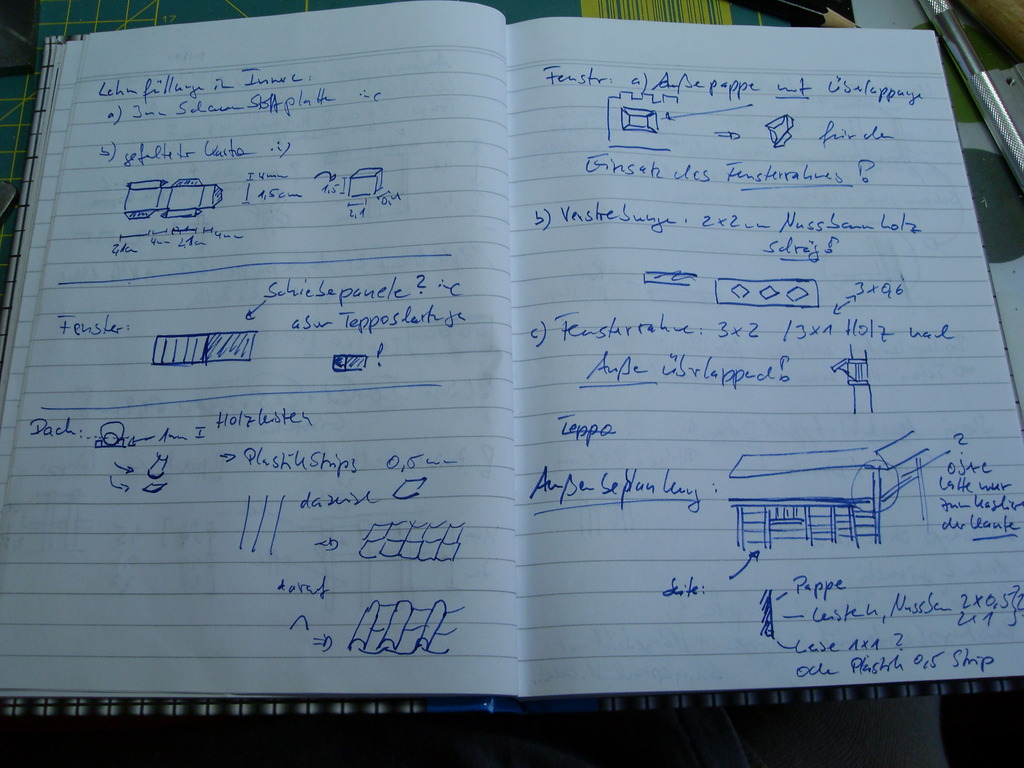 Lehmfüllung im Innern:
a) 3mm Schaumstoffplatte :-c
b) gefalteter Karton :-)
I 4mm
I 1,5cm
1,5
2,1
2,1cm 4mm 2,1cm 4mm
Schiebepanele? :-c
Fenster: aber Teppo
!
Dach: 1mm I Holzleisten
→ Plastik Strips 0,5mm
dazwischen
⇒
darauf
⇒
Fenster: a) Außenpappe mit Überlappung
⇒ für den
Einsatz des Fensterrahmens!
b) Verstrebungen: 2x2mm Nussbaumholz
schräg!
3x0,6
c) Fensterrahmen: 3x2 / 3x1 Holz nach
Außen überlappend!
Teppo
Außenbeplankung:
?
obere
Latte nur
zum
der Kante
Seite:
Pappe
Leisten, Nussbaum 2x0,5?
2x1
Leiste 1x1?
oder Plastik 0,5 Strip